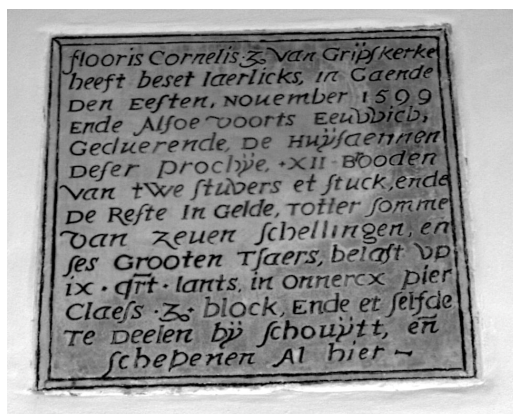 flooris Cornelis . Zo. van Gripskerke
heeft beset Iaerlicks, in Gaende
Den Eesten, November 1599
Ende Alsoe voorts Eeuwich,
Gecluerende, De Huÿsaermen
Deser prochÿe, ·XII· Brooden
van twe stuvers et stuck, ende
De Reste In Gelde, Totter somme
van zeuen schellingen, en
ses Grooten Tsaers, belast vp
ix · qr̄t · lants, in onnercx pier
Claess · Zo· block, Ende et selfde
Te Deelen bÿ schouÿtt, en̄
schepenen Al hier ~